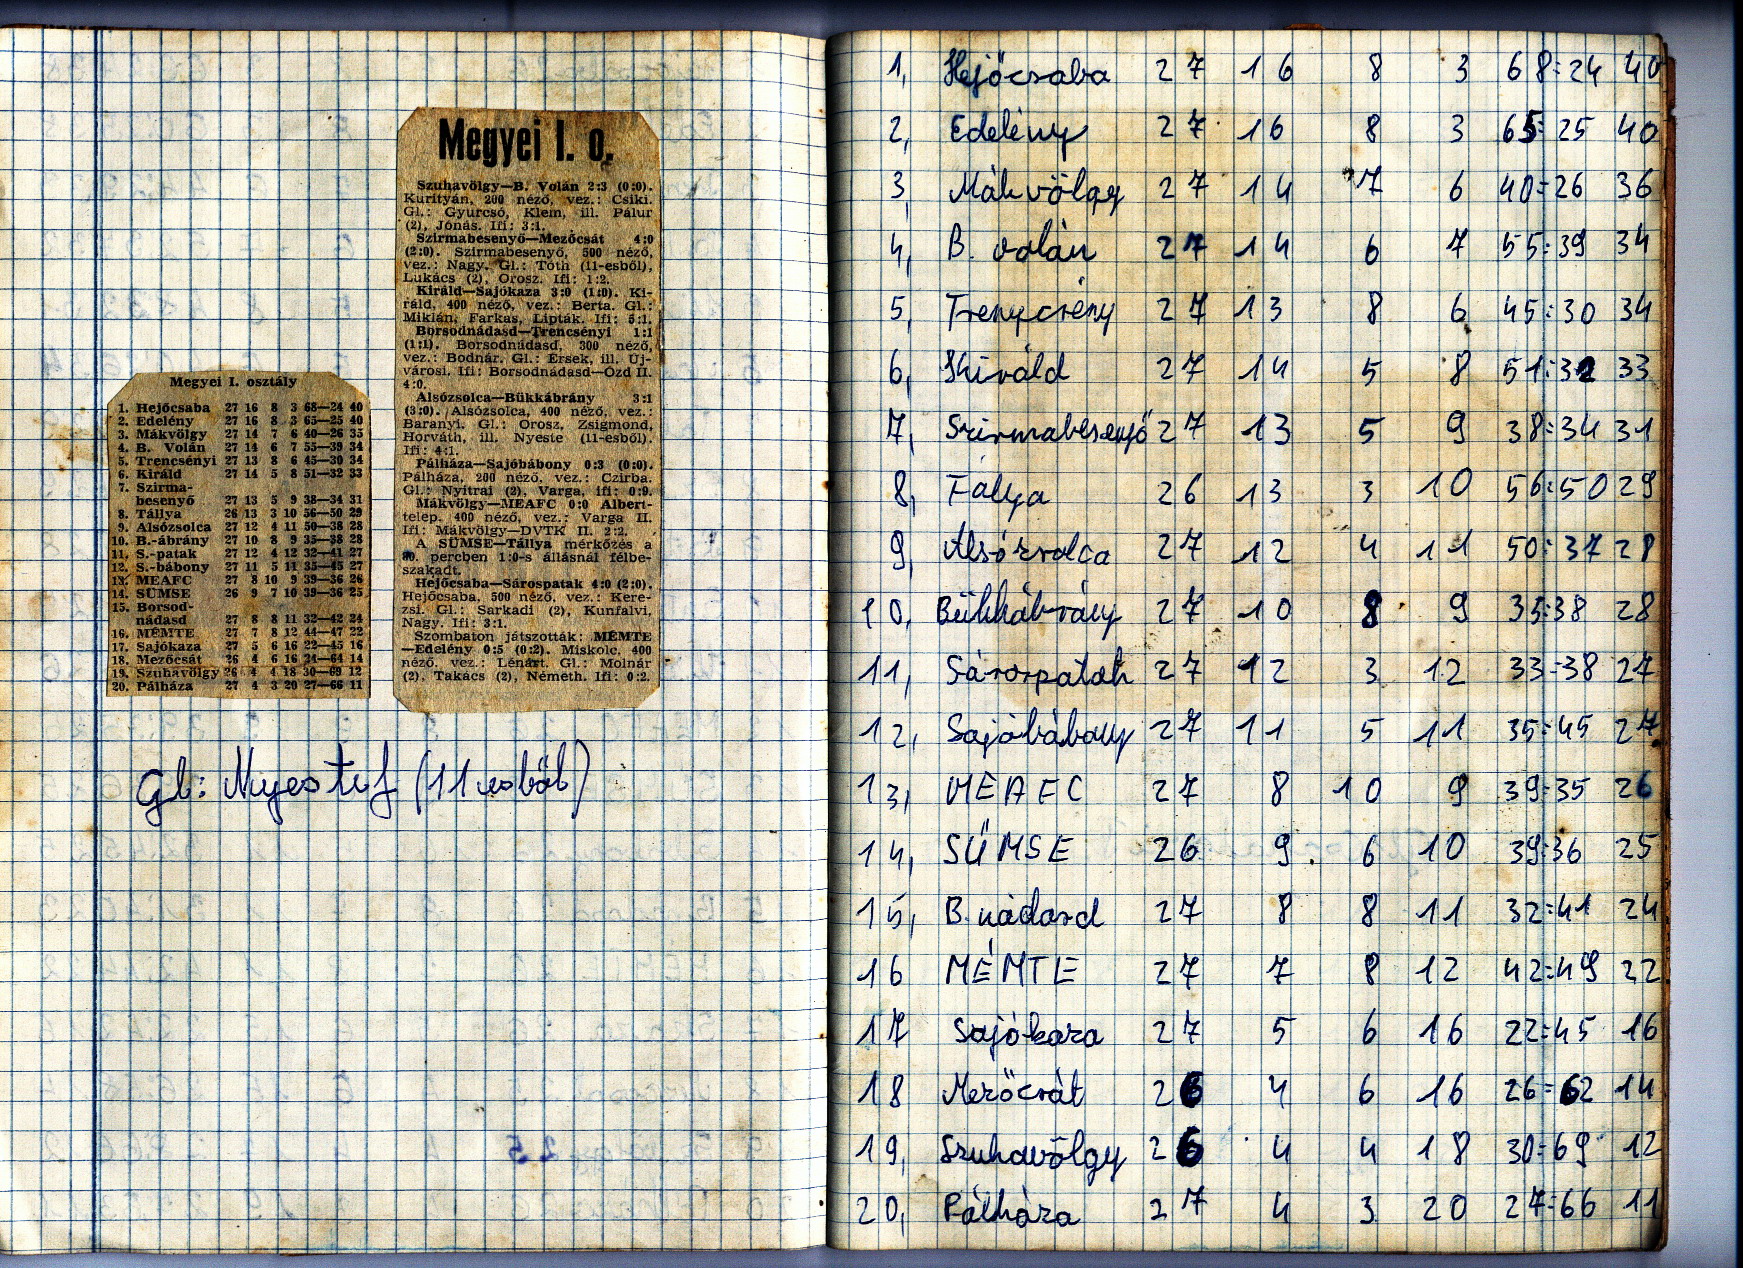 Megyei I. o.
Szuhavölgy—B. Volán 2:3 (0:0).
Kurityán, 200 néző, vez.: Csiki.
Gl.: Gyurcsó, Klem, ill. Pálur
(2), Jónás. Ifi: 3:1.
Szirmabesenyő—Mezőcsát 4:0
(2:0). Szirmabesenyő, 500 néző,
vez.: Nagy. Gl.: Tóth (11-esből),
Lukács (2), Orosz. Ifi: 1:2.
Királd—Sajókaza 3:0 (1:0). Ki-
ráld, 400 néző, vez.: Berta. Gl.:
Miklán, Farkas, Lipták. Ifi: 5:1.
Borsodnádasd—Trencsényi 1:1
(1:1). Borsodnádasd, 300 néző,
vez.: Bodnár. Gl.: Érsek, ill. Új-
városi. Ifi: Borsodnádasd—Ózd II.
4:0.
Alsózsolca—Bükkábrány 3:1
(3:0). Alsózsolca, 400 néző, vez.:
Baranyi. Gl.: Orosz, Zsigmond,
Horváth, ill. Nyeste (11-esből).
Ifi: 4:1.
Pálháza—Sajóbábony 0:3 (0:0).
Pálháza, 200 néző, vez.: Czirba.
Gl.: Nyitrai (2), Varga, ifi: 0:9.
Mákvölgy—MEAFC 0:0 Albert-
telep. 400 néző, vez.: Varga II.
Ifi: Mákvölgy—DVTK II. 2:2.
A SÜMSE—Tállya mérkőzés a
percben 1:0-s állásnál félbe-
szakadt.
Hejőcsaba—Sárospatak 4:0 (2:0).
Hejőcsaba, 500 néző, vez.: Kere-
zsi. Gl.: Sarkadi (2), Kunfalvi,
Nagy. Ifi: 3:1.
Szombaton játszották: MÉMTE
—Edelény 0:5 (0:2). Miskolc, 400
néző, vez.: Lénárt. Gl.: Molnár
(2), Takács (2), Németh. Ifi: 0:2.
Megyei I. osztály
1. Hejőcsaba 27 16 8 3 68—24 40
2. Edelény 27 16 8 3 65—25 40
3. Mákvölgy 27 14 7 6 40—26 35
4. B. Volán 27 14 6 7 55—39 34
5. Trencsényi 27 13 8 6 45—30 34
6. Királd 27 14 5 8 51—32 33
7. Szirma-
besenyő 27 13 5 9 38—34 31
8. Tállya 26 13 3 10 56—50 29
9. Alsózsolca 27 12 4 11 50—38 28
10. B.-ábrány 27 10 8 9 35—38 28
11. S.-patak 27 12 4 12 32—41 27
12. S.-bábony 27 11 5 11 35—45 27
13. MEAFC 27 8 10 9 39—36 26
14. SÜMSE 26 9 7 10 39—36 25
15. Borsod-
nádasd 27 8 8 11 32—42 24
16. MÉMTE 27 7 8 12 44—47 22
17. Sajókaza 27 5 6 16 22—45 16
18. Mezőcsát 26 4 6 16 24—64 14
19. Szuhavölgy 26 4 4 18 30—69 12
20. Pálháza 27 4 3 20 27—66 11
Gl: (11 esből)
1, Hejőcsaba 27 16 8 3 68:24 40
2, Edelény 27 16 8 3 65:25 40
3, Mákvölgy 27 14 7 6 40:26 36
4, B. volán 27 14 6 7 55:39 34
5, Trenycsény 27 13 8 6 45:30 34
6, Királd 27 14 5 8 51:32 33
7, Szirmabesenyő 27 13 5 9 38:34 31
8, Tálya 26 13 3 10 56:50 29
9, Alsózsolca 27 12 4 11 50:37 28
10, Bükkábrány 27 10 8 9 35:38 28
11, Sárospatak 27 12 3 12 33:38 27
12, Sajóbábony 27 11 5 11 35:45 27
13, MEAFC 27 8 10 9 39:35 26
14, SÜMSE 26 9 6 10 39:36 25
15, B. nádasd 27 8 8 11 32:41 24
16 MÉMTE 27 7 8 12 42:49 22
17 Sajókaza 27 5 6 16 22:45 16
18 Mezőcsát 26 4 6 16 26:62 14
19, Szuhavölgy 26 4 4 18 30:69 12
20, Pálháza 27 4 3 20 27:66 11